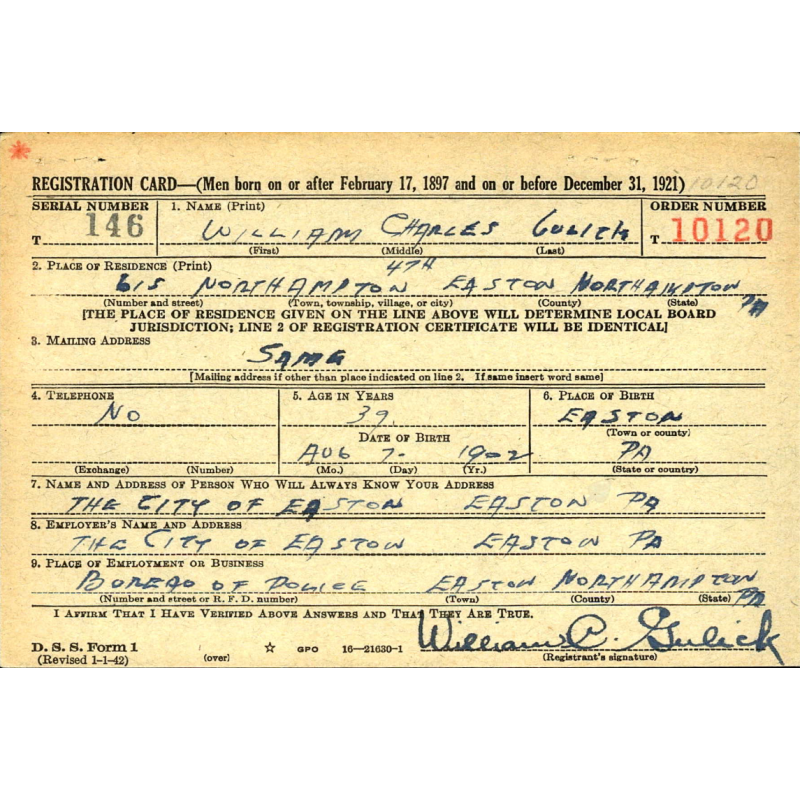 REGISTRATION CARD—(Men born on or after February 17, 1897 and on or before December 31, 1921) 10120
SERIAL NUMBER 1. NAME (Print) ORDER NUMBER
T 146 WILLIAM CHARLES GULICK T 10120
(First) (Middle) (Last)
2. PLACE OF RESIDENCE (Print) 4TH
615 NORTHAMPTON EASTON NORTHAMPTON PA
(Number and street) (Town, township, village, or city) (County) (State)
[THE PLACE OF RESIDENCE GIVEN ON THE LINE ABOVE WILL DETERMINE LOCAL BOARD
JURISDICTION; LINE 2 OF REGISTRATION CERTIFICATE WILL BE IDENTICAL]
3. MAILING ADDRESS
SAME
[Mailing address if other than place indicated on line 2. If same insert word same]
4. TELEPHONE 5. AGE IN YEARS 6. PLACE OF BIRTH
NO 39 EASTON
(Town or county)
DATE OF BIRTH
AUG 7- 1902 PA
(Exchange) (Number) (Mo.) (Day) (Yr.) (State or country)
7. NAME AND ADDRESS OF PERSON WHO WILL ALWAYS KNOW YOUR ADDRESS
THE CITY OF EASTON EASTON PA
8. EMPLOYER'S NAME AND ADDRESS
THE CITY OF EASTON EASTON PA
9. PLACE OF EMPLOYMENT OR BUSINESS
BUREAU OF POLICE EASTON NORTHAMPTON PA
(Number and street or R. F. D. number) (Town) (County) (State)
I AFFIRM THAT I HAVE VERIFIED ABOVE ANSWERS AND THAT THEY ARE TRUE.
William C. Gulick
D. S. S. Form 1
(Revised 1-1-42) (over) ☆ GPO 16—21630-1 (Registrant's signature)